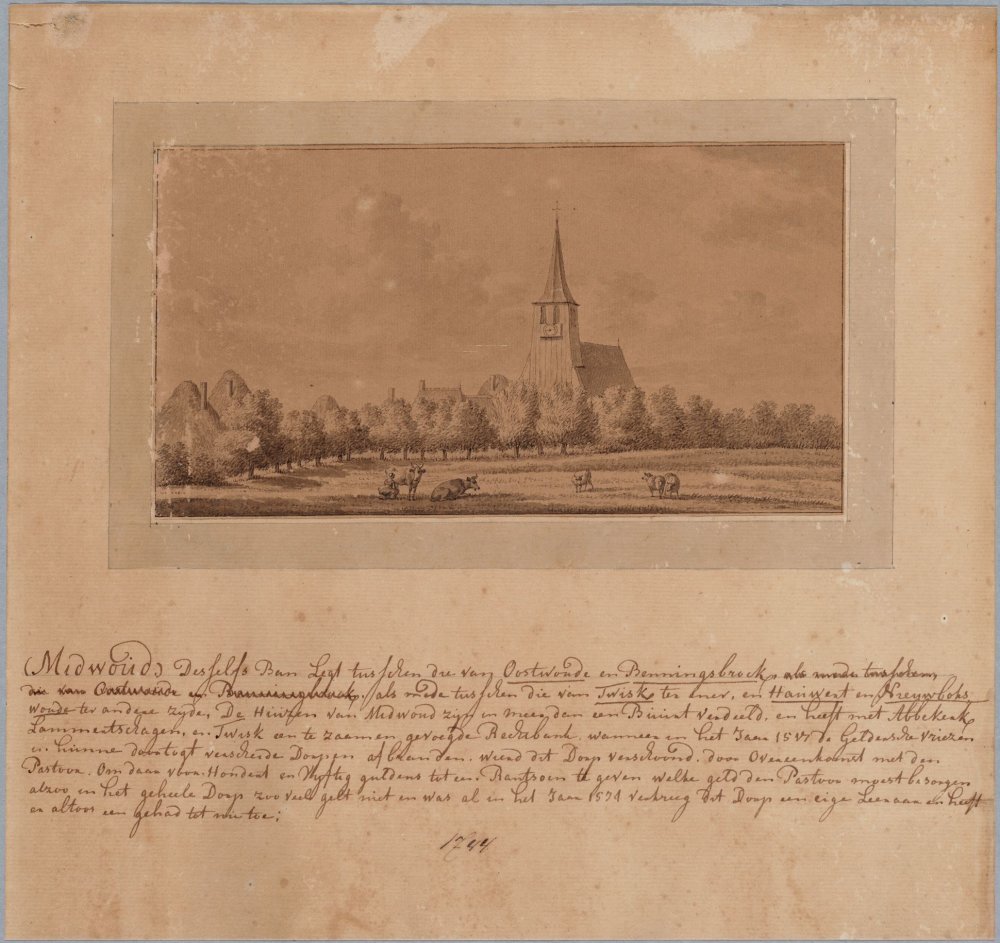 (Midwoud) Desselfs Ban Legt tusschen die van Oostwoude en Benningsbroek, als mede tusschen
die van Oostwoude en Benningsbroek, als mede tusschen die van Twisk ter ener, en Hauwert en Nreywboks
woude ter andere zyde, De Huizen van Midwoud zyn in meer dan een Buurt verdeeld, en heeft met Abbekerk
Lammertschagen, en Twisk een te zaamen gevoegde Rechtbank, wanneer in het Jaar 1517 de Geldersche Vriezen
in hunne doortogt verscheide Dorpen afbranden, wierd dit Dorp verschoond, door Overeenkomst met den
Pastoor, Om daar voor Hondert en Vyftig guldens tot een Rantsoen te geven welke geld den Pastoor moest bezorgen
alzoo in het geheele Dorp zoo veel gelt niet en was al in het Jaar 1574 verkreeg dit Dorp een eige Leeraar en heeft
en altoos een gehad tot nu toe;
1794